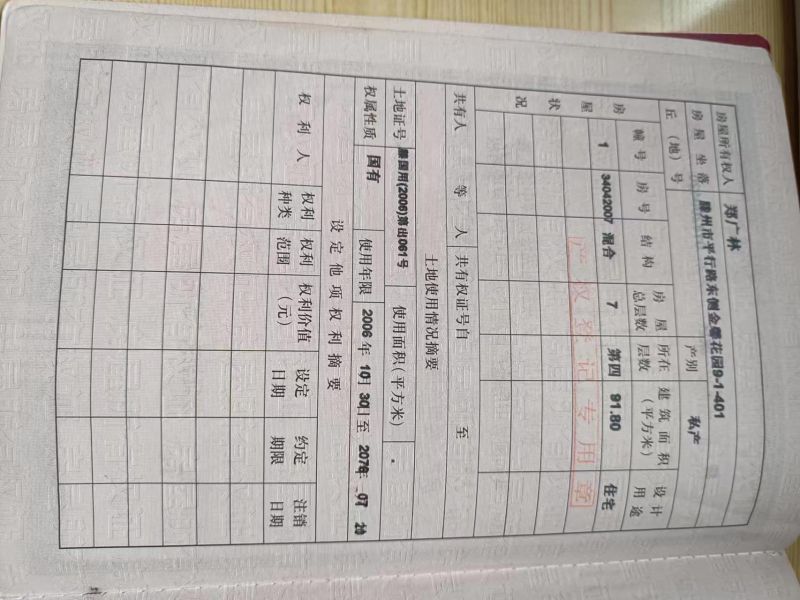 房屋所有权人 郑广林
房屋坐落 滕州市平行路东侧金馨花园9-1-401
丘（地）号 产别 私产
房屋状况
幢号 房号 结构 房屋总层数 所在层数 建筑面积（平方米） 设计用途
1 34042007 混合 7 第四 91.80 住宅
产权登记专用章
共有人 等 人 共有权证号自 至
土地使用情况摘要
土地证号 滕国用(2006)第出061号 使用面积（平方米）
权属性质 国有 使用年限 2006年10月30日至2076年07
设定他项权利摘要
权利人 权利种类 权利范围 权利价值（元） 设定日期 约定期限 注销日期